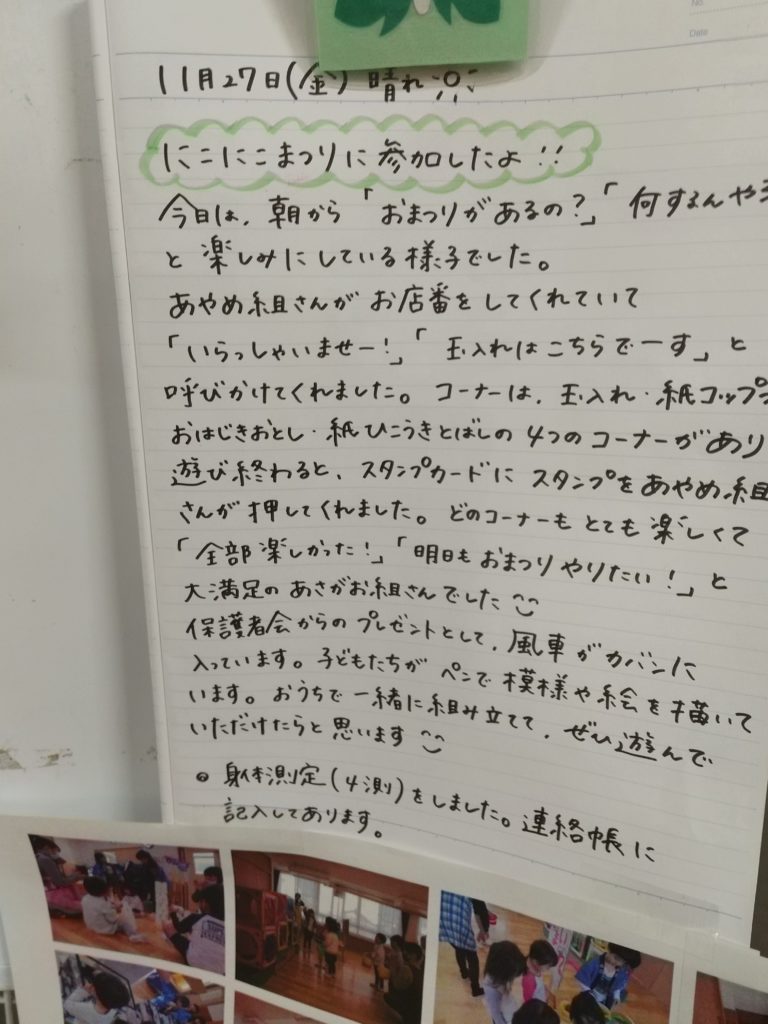 No.
Date
11月27日(金) 晴れ
にこにこまつりに参加したよ!!
今日は、朝から「おまつりがあるの?」「何するんやろ
と楽しみにしている様子でした。
あやめ組さんがお店番をしてくれていて
「いらっしゃいませー!」「玉入れはこちらでーす」と
呼びかけてくれました。コーナーは、玉入れ・紙コップ
おはじきおとし・紙ひこうきとばしの4つのコーナーがあり
遊び終わると、スタンプカードにスタンプをあやめ組
さんが押してくれました。どのコーナーもとても楽しくて
「全部楽しかった!」「明日もおまつりやりたい!」と
大満足のあさがお組さんでした
保護者会からのプレゼントとして、風車がカバンに
入っています。子どもたちがペンで模様や絵を描いて
います。おうちで一緒に組み立てて、ぜひ遊んで
いただけたらと思います
• 身体測定(4測)をしました。連絡帳に
記入してあります。